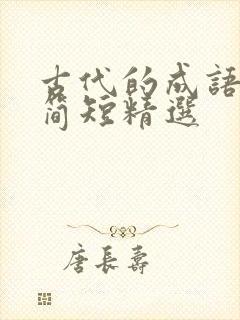 古代的成語
简短精選
唐長壽